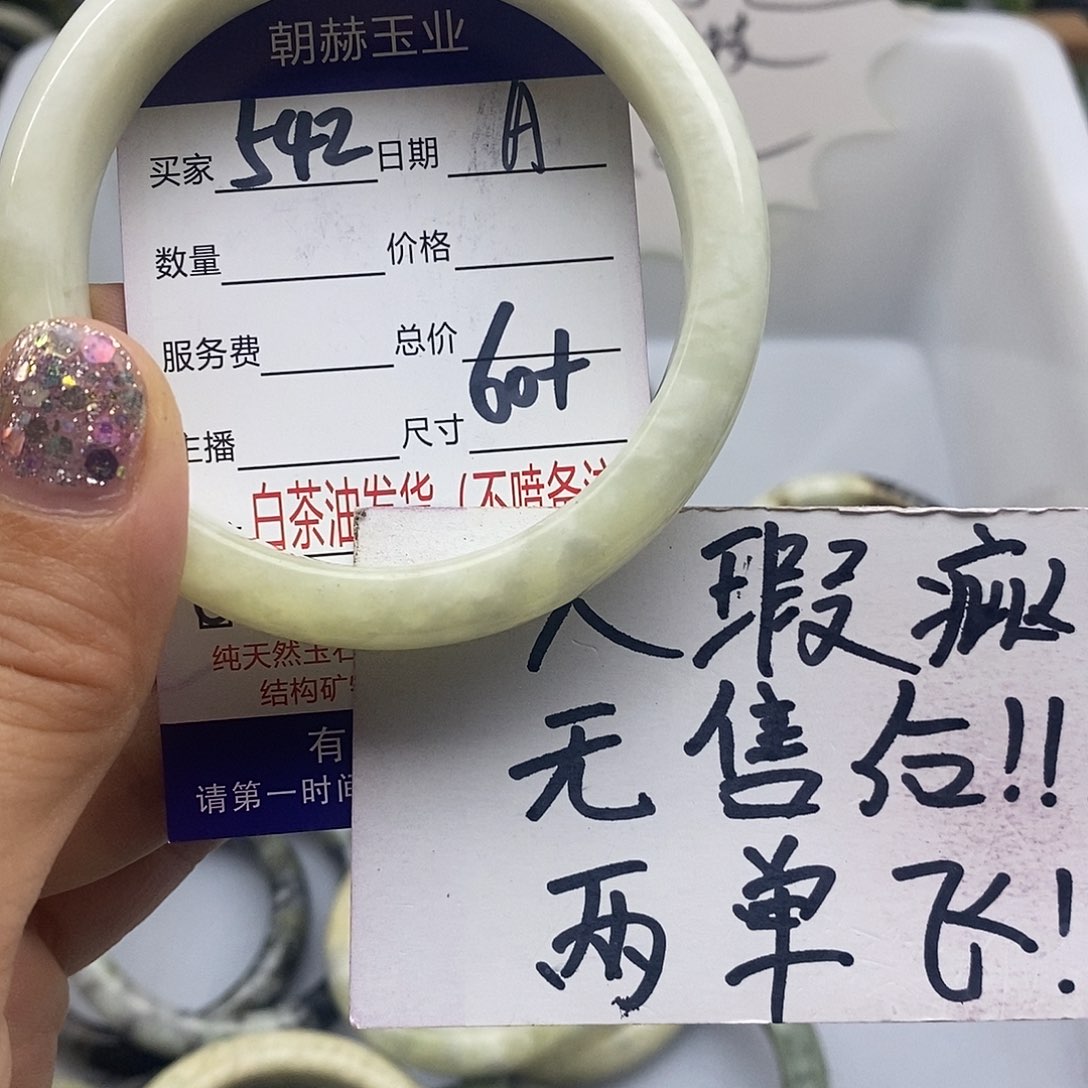 朝赫玉业
买家 542 日期 A
数量 价格
服务费 总价 60+
主播 尺寸
白茶油发货（不喷备注
纯天然玉石
结构矿物
有
请第一时间
人瑕疵
无售后!!
两单飞!